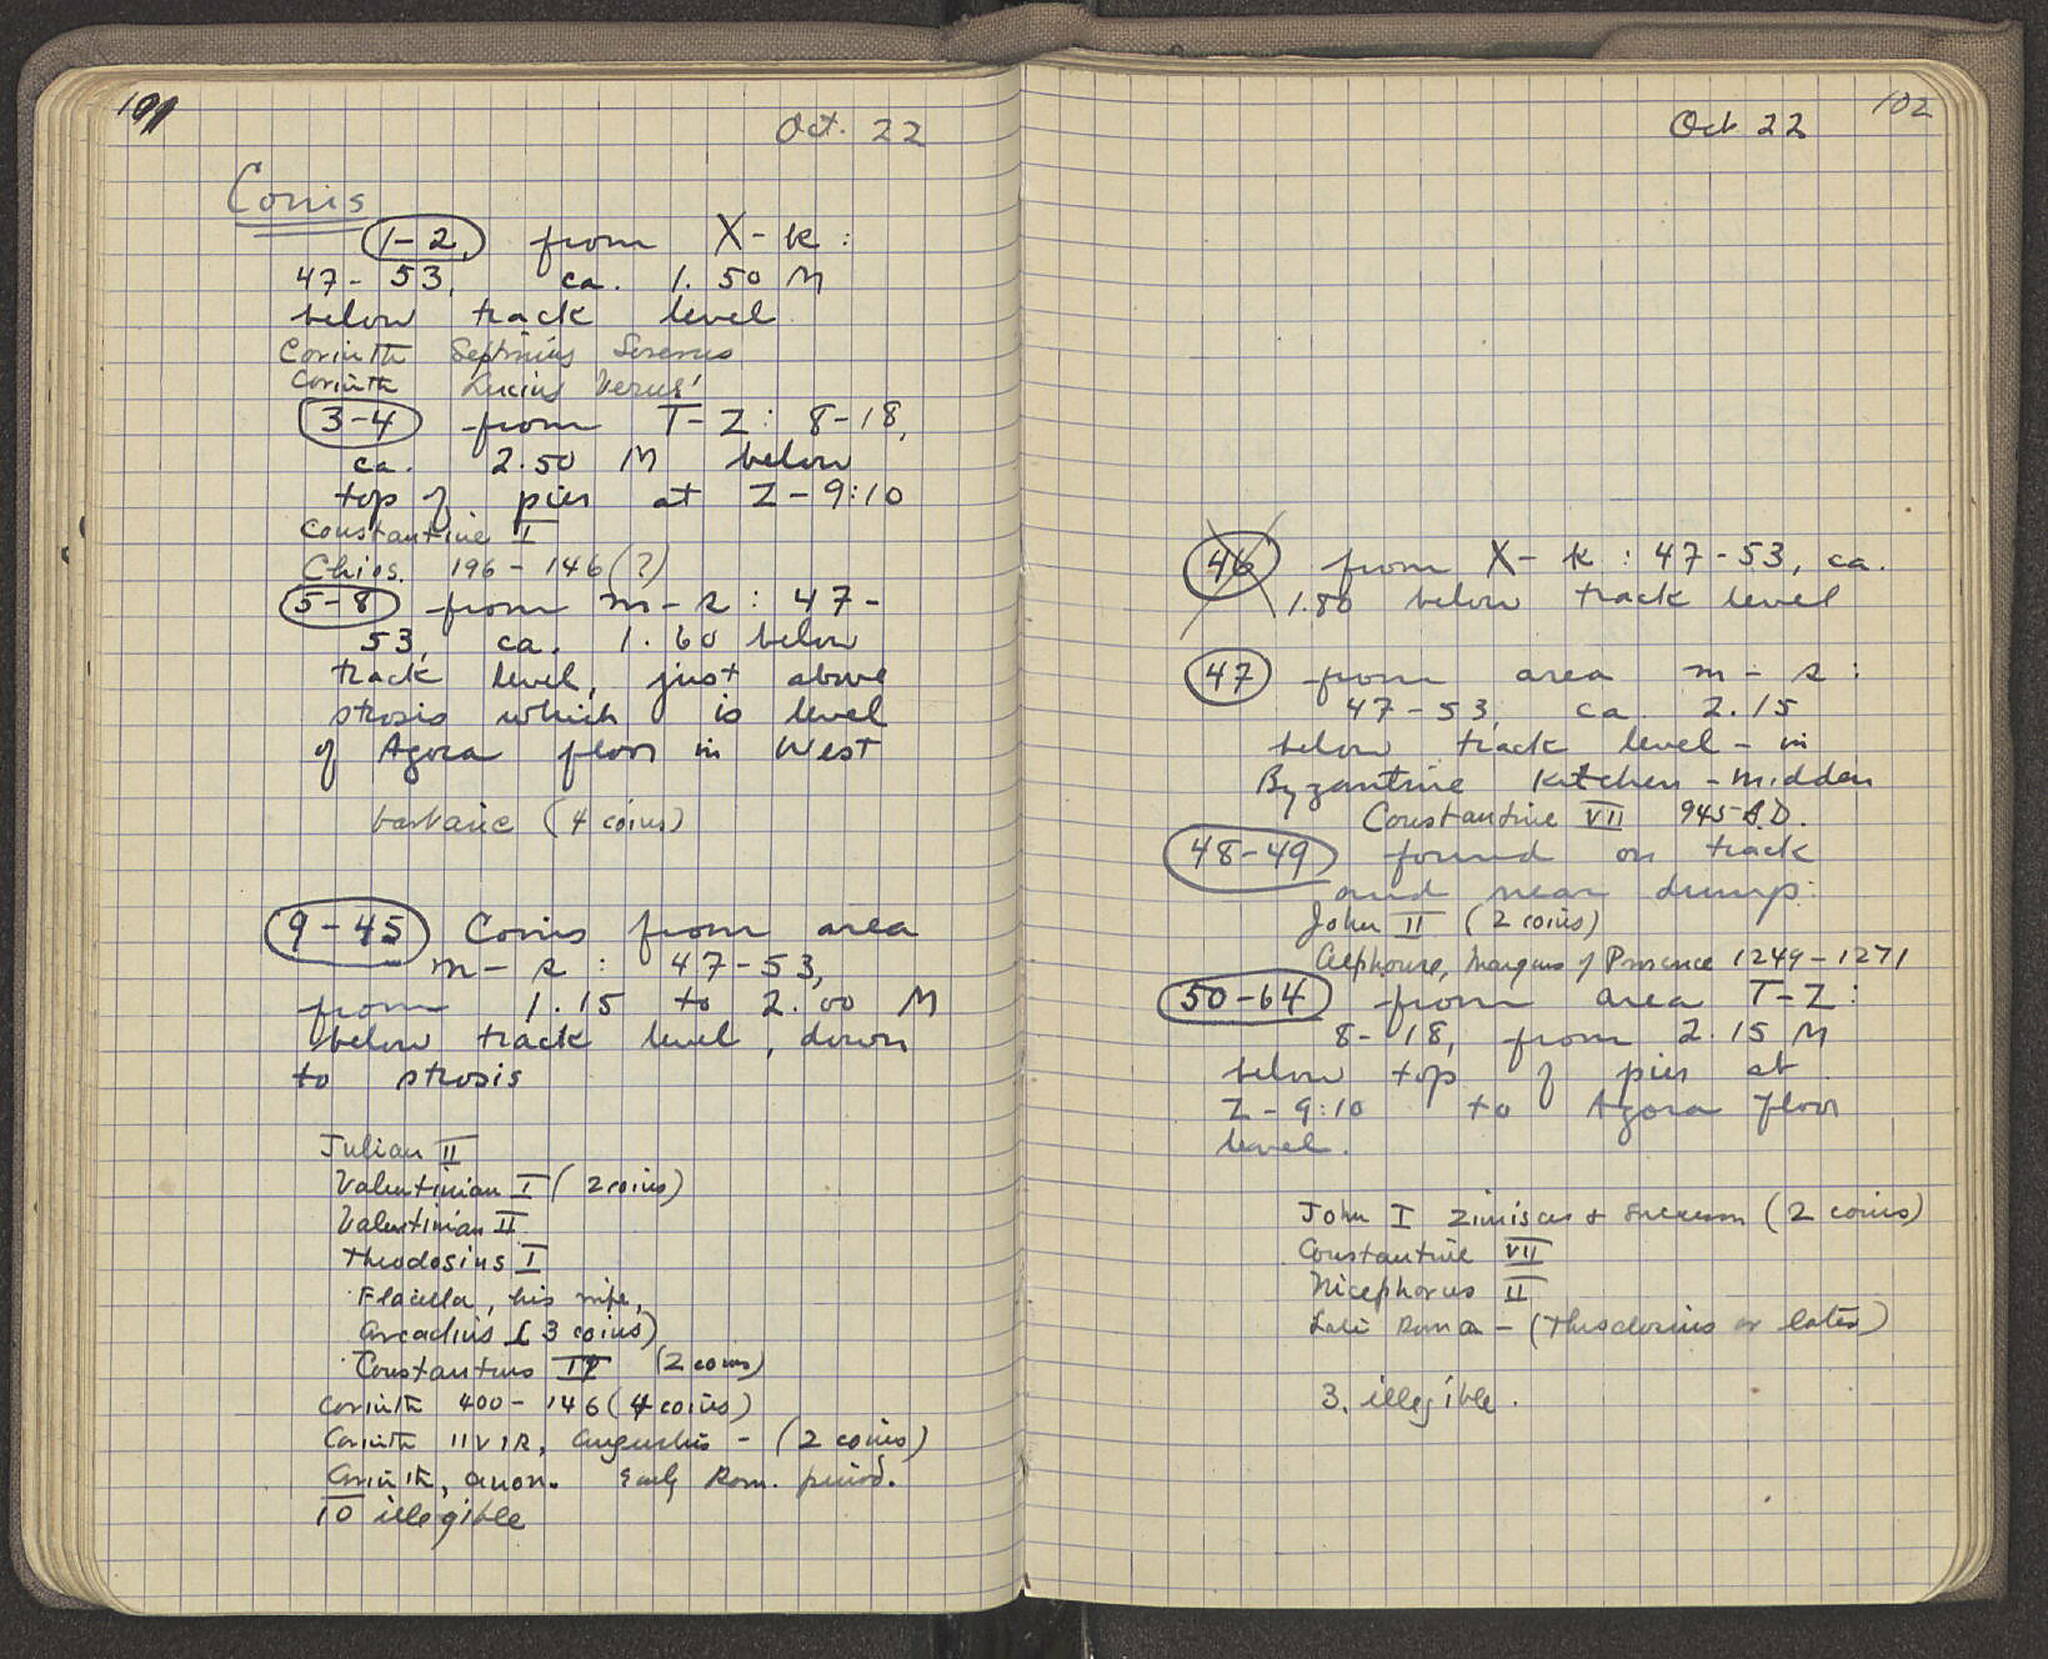 101
Oct. 22
Coins
1-2, from X-k:
47-53, ca. 1.50 M
below track level
Corinth Septimius Severus
Corinth Lucius Verus
3-4 from T-Z: 8-18,
ca. 2.50 M below
top of pier at Z-9:10
Constantine I
Chios. 196-146(?)
5-8 from m-s: 47-
53, ca. 1.60 below
track level, just above
strosis which is level
of Agora floor in West
barbaric (4 coins)
9-45 Coins from area
m-s: 47-53,
from 1.15 to 2.00 M
below track level, down
to strosis
Julian II
Valentinian I (2 coins)
Valentinian II
Theodosius I
Flacilla, his wife,
Arcadius (3 coins)
Constantius (2 coins)
Corinth 400-146 (4 coins)
Corinth IIVIR, Augustus - (2 coins)
Corinth, anon. Early Rom. period.
10 illegible
102
Oct 22
46 from X-k: 47-53, ca.
1.80 below track level
47 from area m-s:
47-53, ca. 2.15
below track level - in
Byzantine kitchen-midden
Constantine VII 945 A.D.
48-49 found on track
and near dump:
John II (2 coins)
Alphonse, Marquis of Provence 1249-1271
50-64 from area T-Z:
8-18, from 2.15 M
below top of pier at
Z-9:10 to Agora floor
level.
John I Zimisces + (2 coins)
Constantine VII
Nicephorus II
Late Roma - (Theodosius or later)
3. illegible.